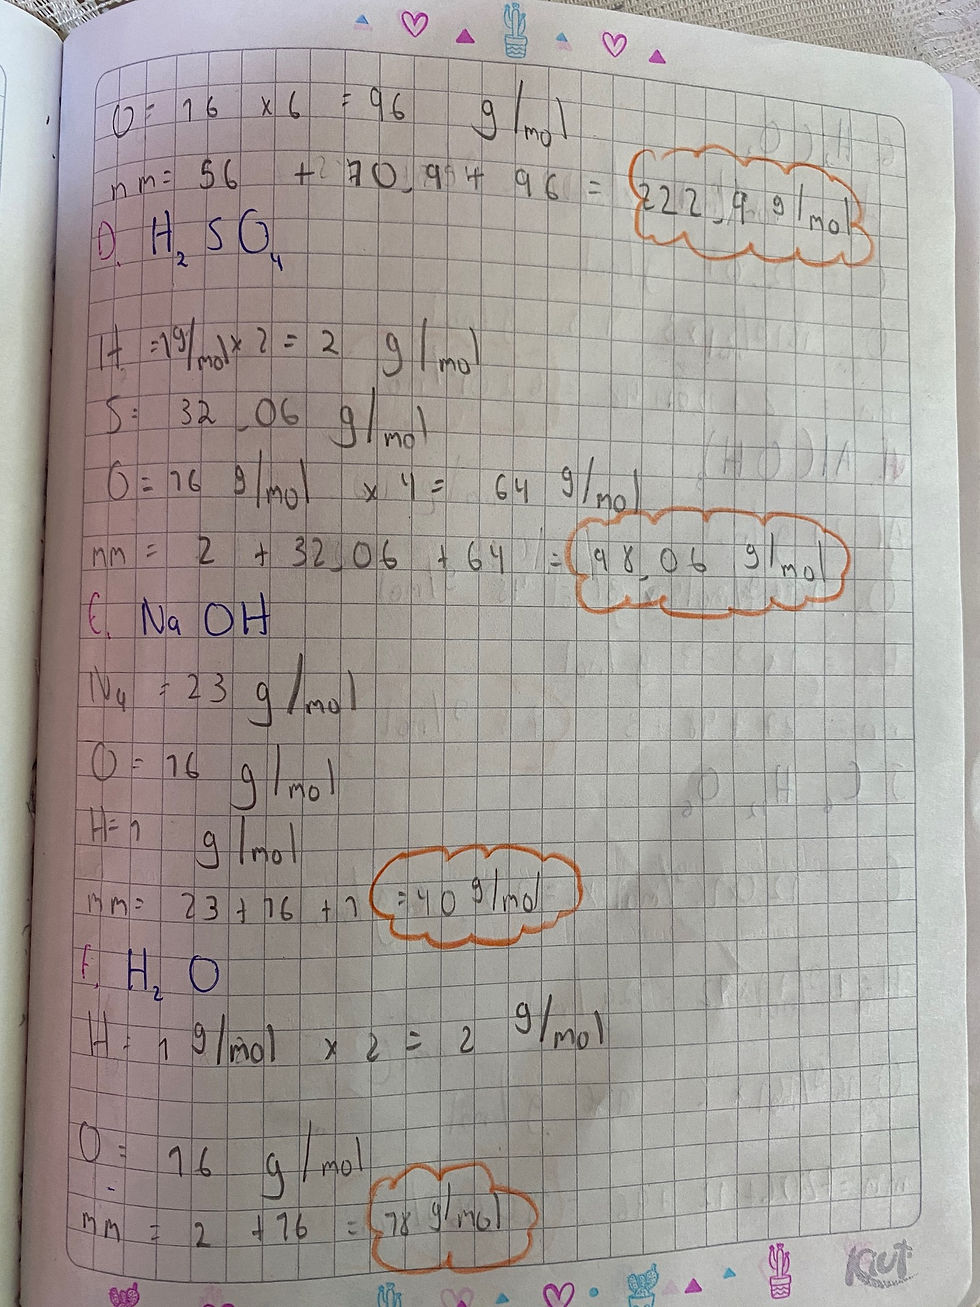 O = 16 x 6 = 96 g/mol
mm = 56 + 70.9 + 96 = 222.9 g/mol
D. H₂SO₄
H = 1g/mol x 2 = 2 g/mol
S = 32.06 g/mol
O = 16 g/mol x 4 = 64 g/mol
mm = 2 + 32.06 + 64 = 98.06 g/mol
E. NaOH
Na = 23 g/mol
O = 16 g/mol
H = 1 g/mol
mm = 23 + 16 + 1 = 40 g/mol
F. H₂O
H = 1 g/mol x 2 = 2 g/mol
O = 16 g/mol
mm = 2 + 16 = 18 g/mol
Kiut